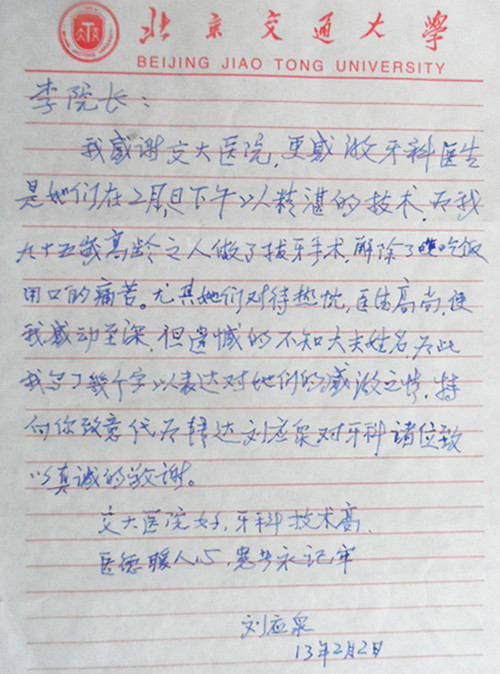 北京交通大学
BEIJING JIAO TONG UNIVERSITY
李院长:
我感谢交大医院,更感激牙科医生
是她们在2月1日下午以精湛的技术,为我
九十五岁高龄之人做了拔牙手术,解除了吃饭
用口的痛苦。尤其她们对待热忱,医德高尚,使
我感动至深,但遗憾的不知大夫姓名,为此
我写了几个字以表达对她们的感激之情,特
向你致意代为转达刘应泉对牙科诸位致
以真诚的敬谢。
交大医院好,牙科技术高,
医德暖人心,患者永记牢
刘应泉
13年2月2日